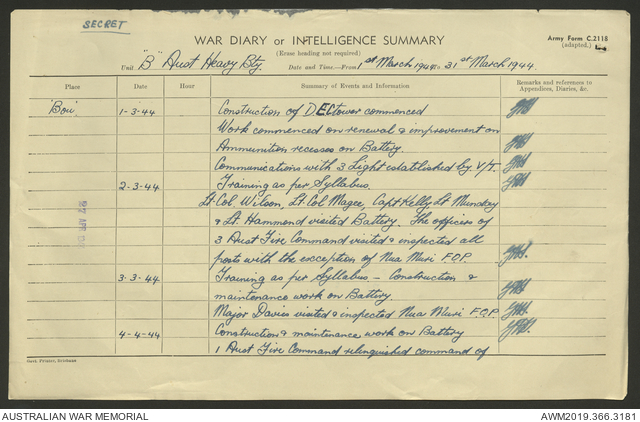 SECRET
WAR DIARY or INTELLIGENCE SUMMARY
Army Form C.2118
(adapted.)
(Erase heading not required)
Unit "B" Aust Heavy Bty.
Date and Time—From 1st March 1944 to 31st March 1944.
Place Date Hour Summary of Events and Information Remarks and references to Appendices, Diaries, &c.
'Boii' 1-3-44 Construction of DEC tower commenced
Work commenced on renewal & improvement on
Ammunition recesses on Battery.
Communications with 3 Light established by V/T.
2-3-44 Training as per Syllabus.
Lt. Col. Wilson, Lt. Col Magee, Capt Kelly, Lt Munday
& Lt. Hammond visited Battery. The officers of
3 Aust Fire Command visited & inspected all
posts with the exception of Nua Muri F.O.P.
3-3-44 Training as per Syllabus – Construction &
maintenance work on Battery.
Major Davies visited & inspected Nua Muri F.O.P
4-4-44 Construction & maintenance work on Battery
1 Aust Fire Command relinquished command of
AUSTRALIAN WAR MEMORIAL
AWM2019.366.3181